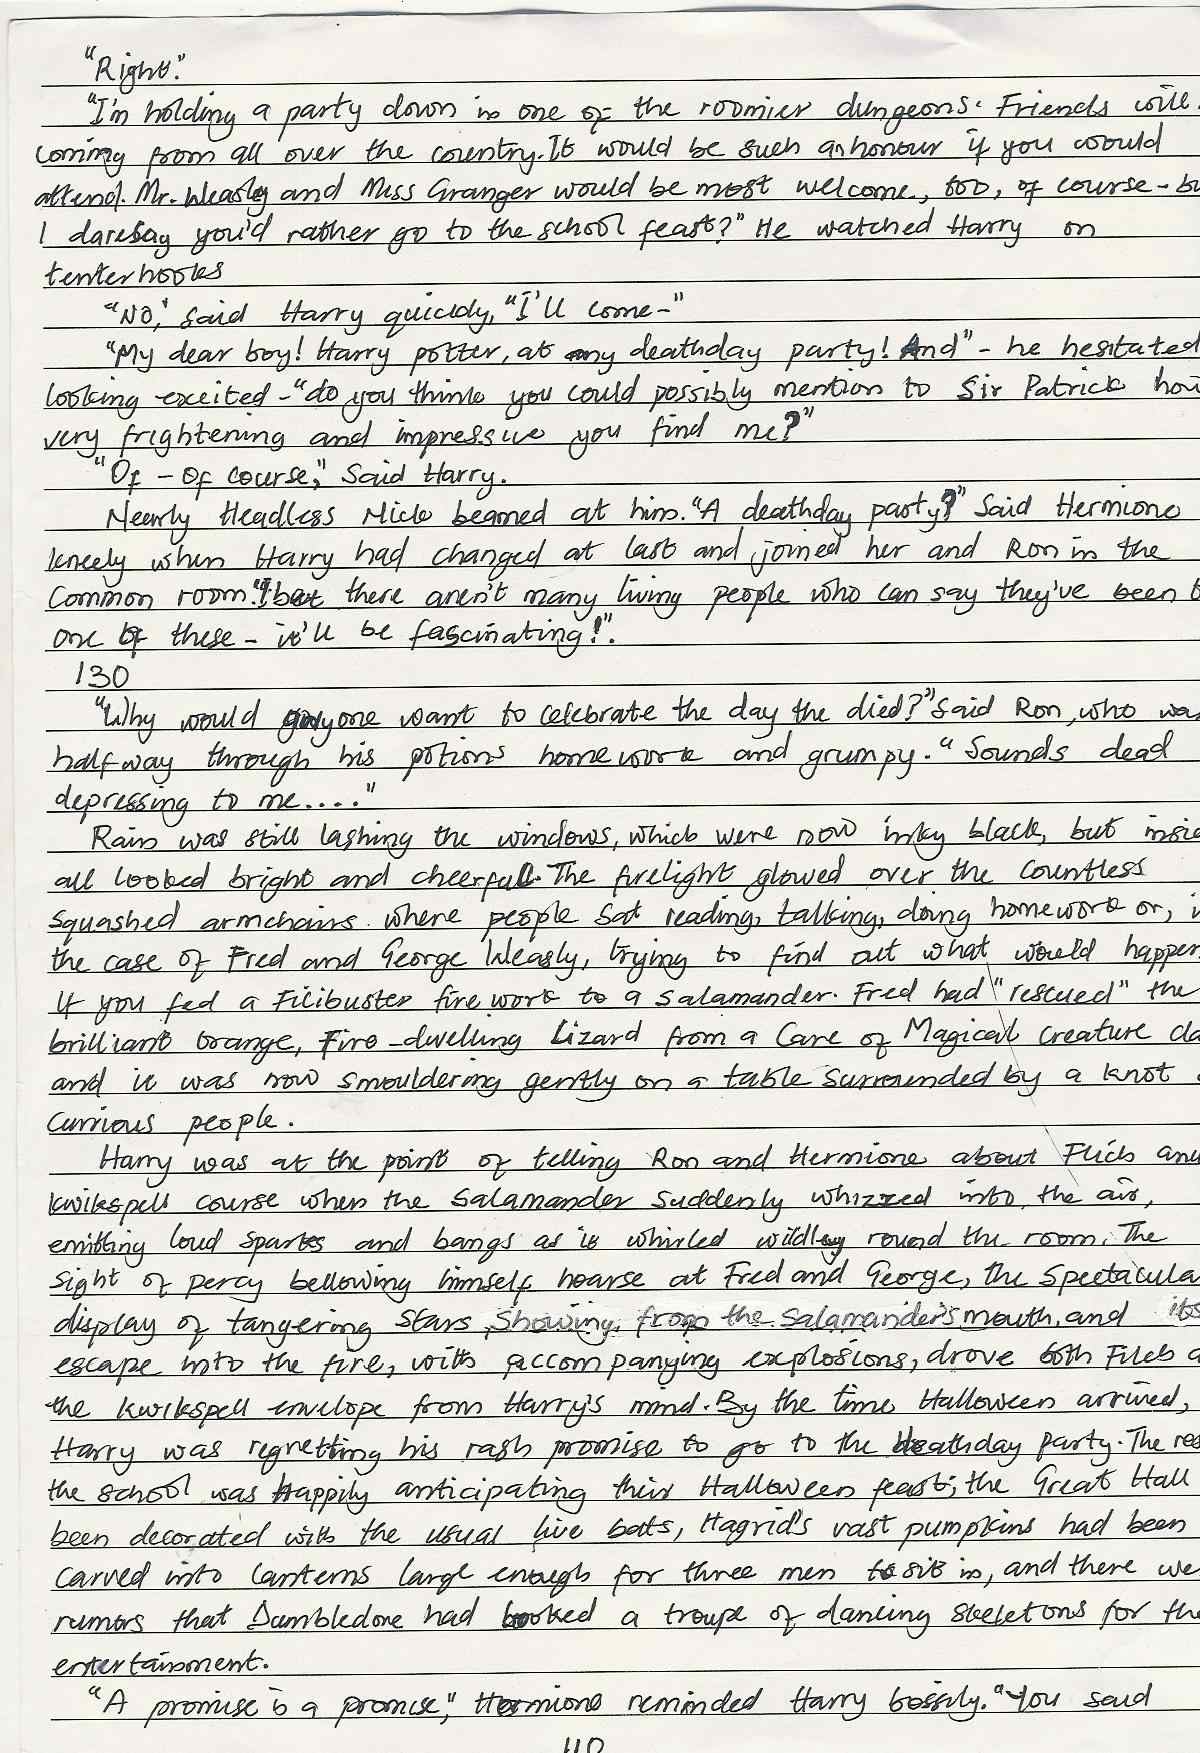 "Right."
"I'm holding a party down in one of the roomier dungeons. Friends will
coming from all over the country. It would be such an honour if you would
attend. Mr. Weasley and Miss Granger would be most welcome, too, of course - bu
I daresay you'd rather go to the school feast?" He watched Harry on
tenterhooks
"No," said Harry quickly, "I'll come-"
"My dear boy! Harry potter, at my deathday party! And" - he hesitated
looking excited - "do you think you could possibly mention to Sir Patrick how
very frightening and impressive you find me?"
"Of - Of course," Said Harry.
Nearly Headless Nick beamed at him. "A deathday party?" Said Hermione
kneely when Harry had changed at last and joined her and Ron in the
Common room. "I bet there aren't many living people who can say they've been t
one of these - it'll be fascinating!".
130
"Why would anyone want to celebrate the day the died?" Said Ron, who was
half way through his potions homework and grumpy. "Sounds dead
depressing to me...."
Rain was still lashing the windows, which were now inky black, but insid
all looked bright and cheerful. The firelight glowed over the countless
squashed armchairs where people sat reading, talking, doing homework or, i
the case of Fred and George Weasly, trying to find out what would happen
If you fed a Filibuster firework to a salamander. Fred had "rescued" the
brilliant orange, Fire-dwelling Lizard from a Care of Magical Creature cla
and it was now smouldering gently on a table surrounded by a knot o
Currious people.
Harry was at the point of telling Ron and Hermione about Flich and
kwikspell course when the Salamander Suddenly whizzed into the air,
emitting loud sparks and bangs as it whirled wildly round the room. The
Sight of percy bellowing himself hoarse at Fred and George, the Spectacula
display of tangering stars Showing from the Salamander's mouth, and its
escape into the fire, with accompanying explosions, drove both Filch a
the kwikspell envelope from Harry's mind. By the time Halloween arrived,
Harry was regretting his rash promise to go to the deathday party. The res
the school was happily anticipating their Halloween feast; the Great Hall
been decorated with the usual live bats, Hagrid's vast pumpkins had been
carved into lanterns large enough for three men to sit in, and there we
rumors that Dumbledore had booked a troupe of dancing skeletons for the
entertainment.
"A promise is a promise," Hermione reminded Harry bossily. "You said
110